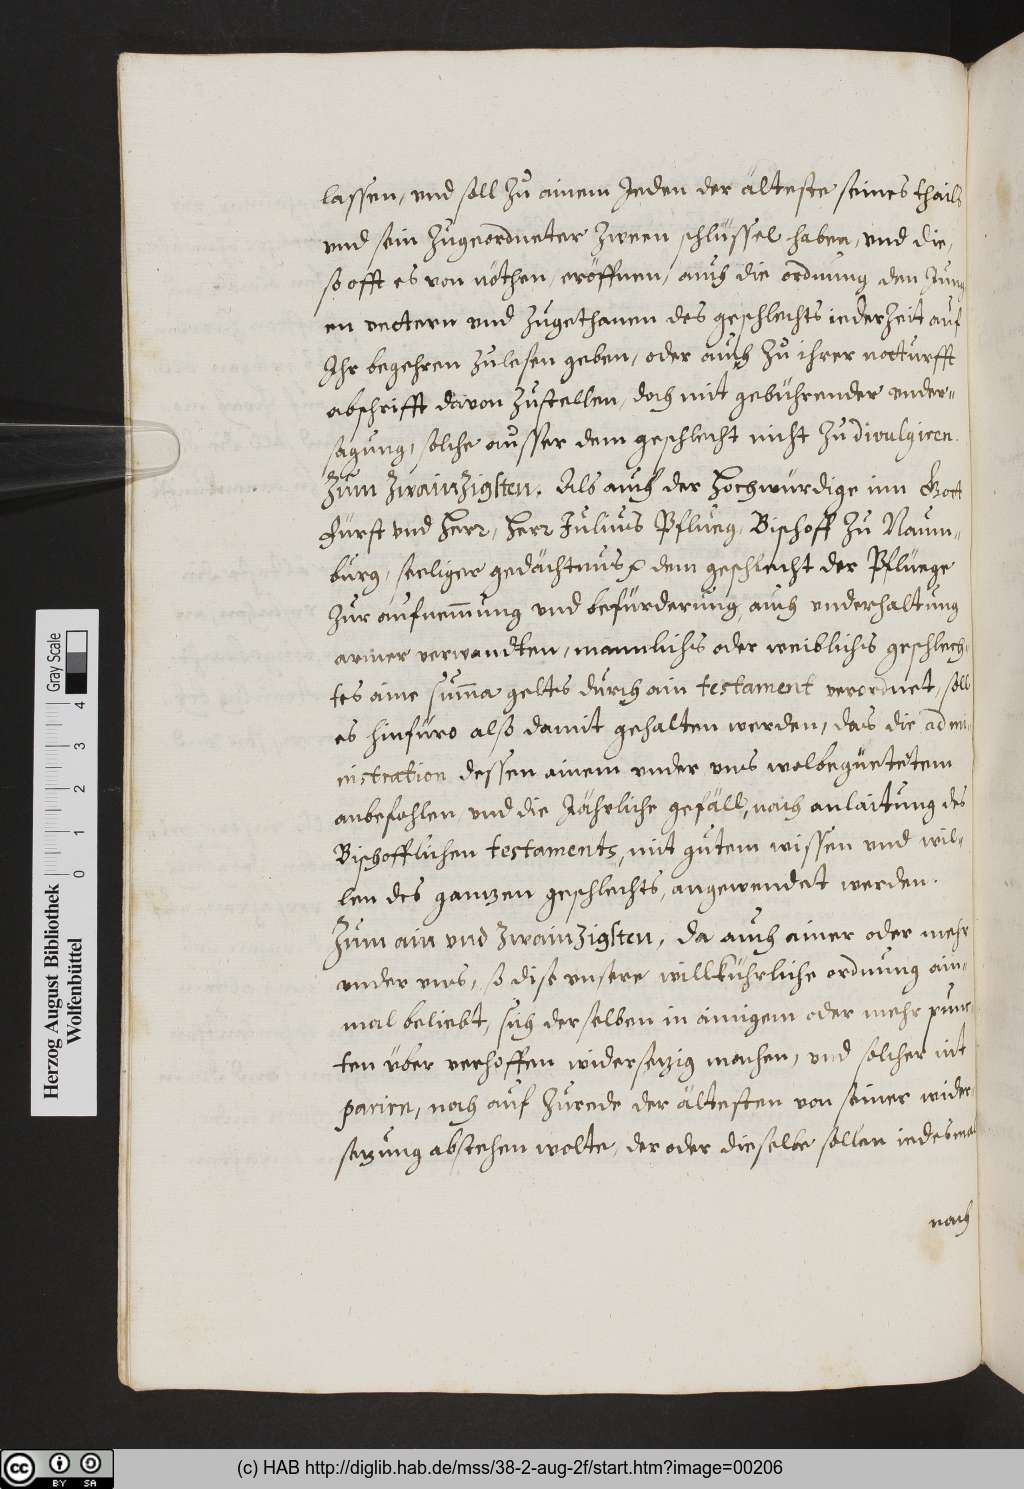 lassen, vnd soll zu ainem Jeden der älteste seines thails
vnd sein zugeordneter zween schlüssel haben, vnd die,
so offt es von nöthen, eröffnen, auch die ordnung den Jung
en vettern vnd zugethanen des geschlechts iederzeit auf
Ihr begehren zulesen geben, oder auch zu ihrer notturfft
abschrifft davon zustellen, doch mit gebührender vnder=
sagung, solche ausser dem geschlecht nicht zu divulgiren.
Zum Zwainzigsten. Als auch der Hochwürdige inn Gott
Fürst vnd Herr, Herr Julius Pflueg, Bischoff zu Naum=
burg, seeliger gedächtnus dem geschlecht der Pflüege
zur aufnem̄ung vnd befürderung, auch vnderhaltung
armer verwandten, mannlichs oder weiblichs geschlech=
tes aine sum̄a geltes durch ain testament verordnet, soll
es hinfüro also damit gehalten werden, das die admi=
nistration dessen ainem vnder vns wolbegüetetem
anbefohlen, vnd die Jährliche gefäll, nach anlaitung des
Bischofflichen testaments, mit gutem wissen vnd wil=
len des ganzen geschlechts, angewendet werden.
Zum ain vnd zwainzigsten, da auch ainer oder mehr
vnder vns, so dise vnsere willkührliche ordnung ain=
mal beliebt, sich derselben in ainigem oder mehr punc=
ten über verhoffen widersetzig machen, vnd solcher nit
parirn, noch auf zurede der ältesten von seiner wider
setzung abstehen wolte, der oder dieselbe sollen iedesmal
nach
Herzog August Bibliothek
Wolfenbüttel
Gray Scale
0 1 2 3 4
cc BY SA
(c) HAB http://diglib.hab.de/mss/38-2-aug-2f/start.htm?image=00206